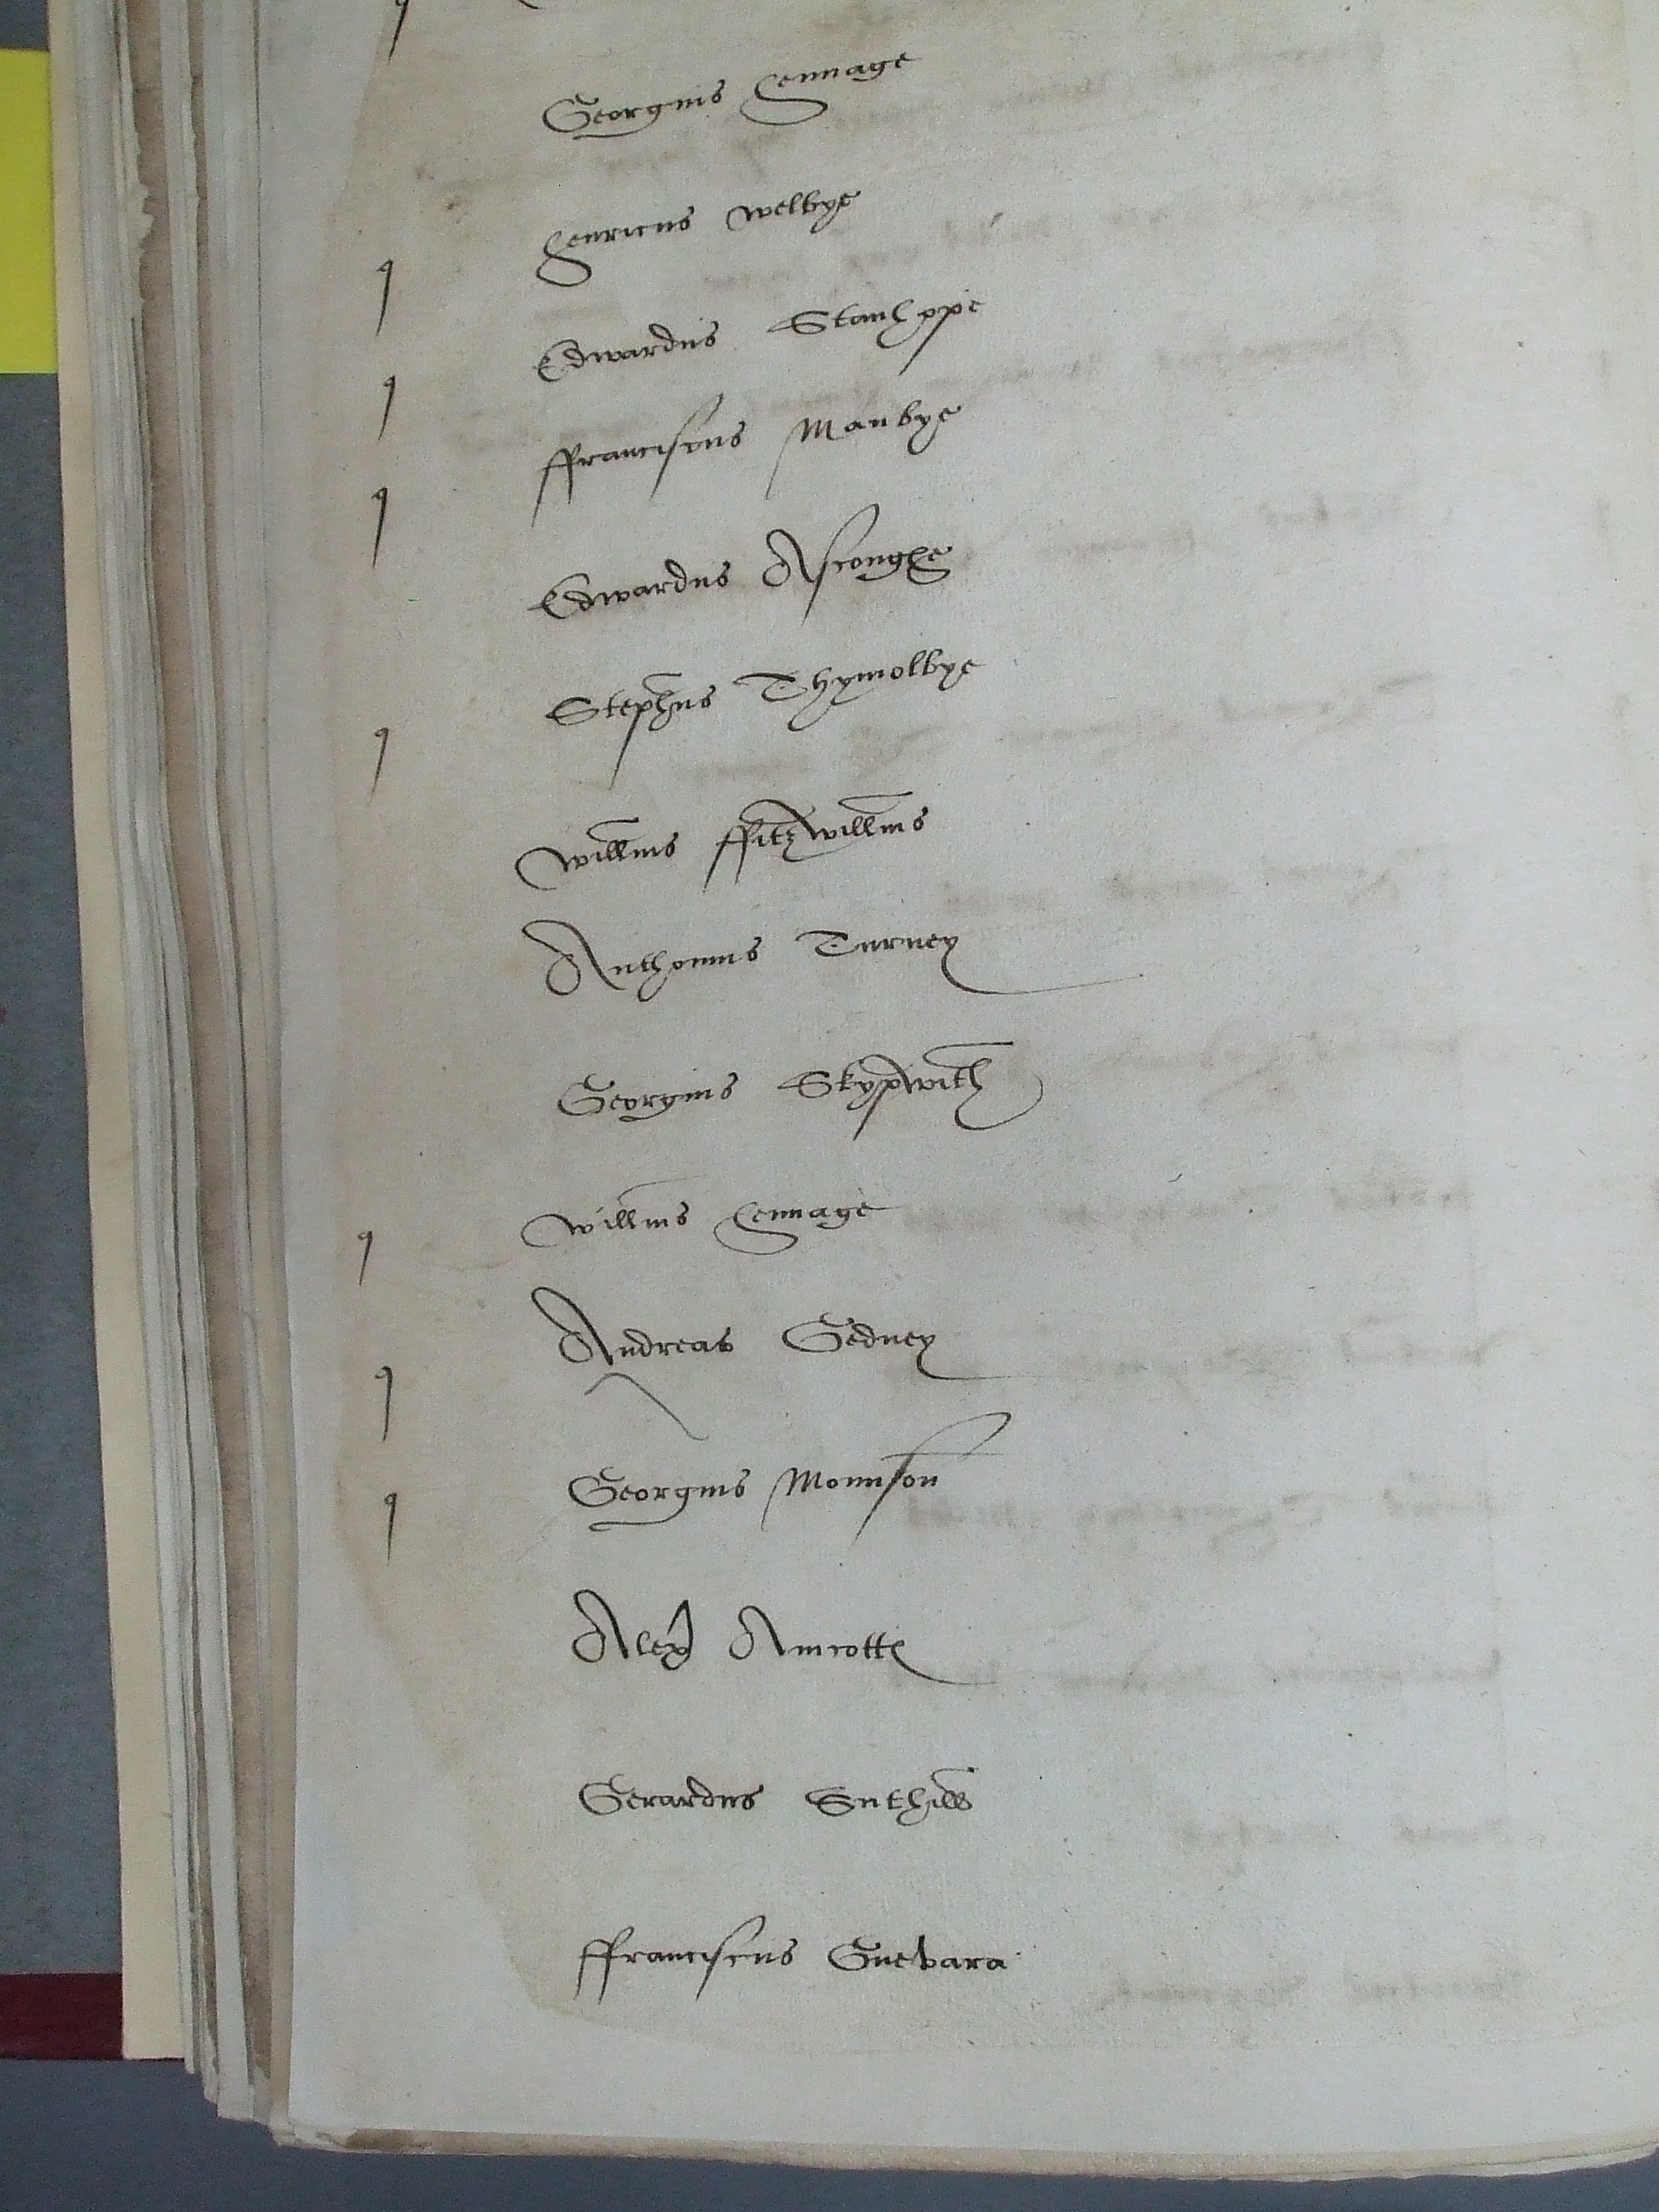 Georgius Hennage
Henricus Welbye
Edwardus Stanhope
ffranciscus Manbye
Edwardus Ascoughe
Stephus Thymolbye
Willms ffitzwillms
Anthonius Turney
Georgius Skypwith
Willms Hennage
Andreas Gedney
Georgius Mounson
Alex Amcotte
Gerardus Suthill
ffranciscus Guevara